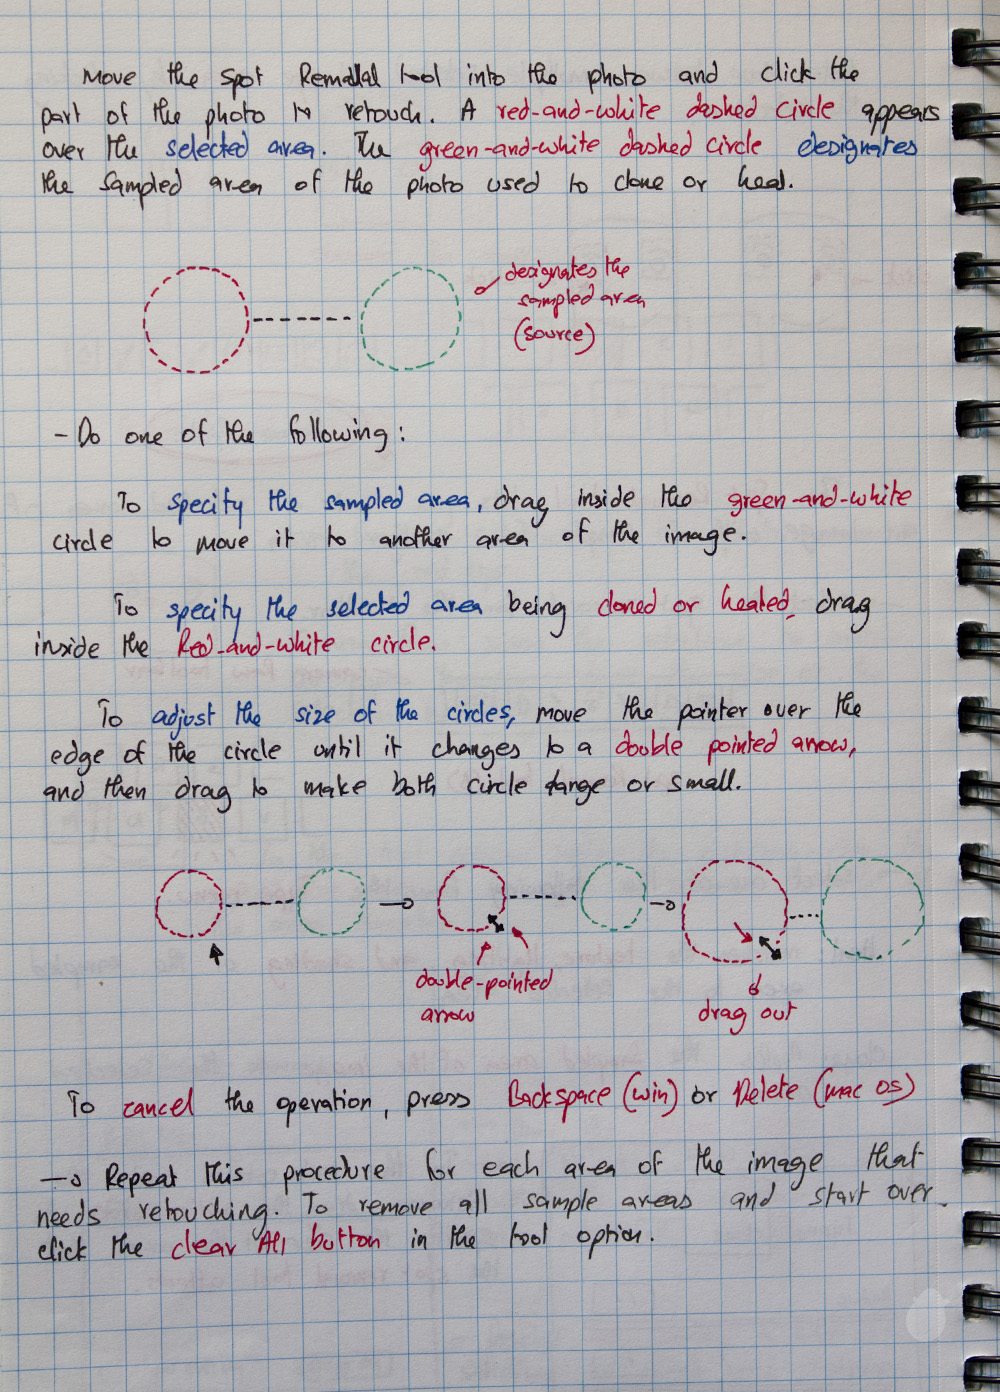 Move the Spot Removal tool into the photo and click the
part of the photo to retouch. A red-and-white dashed circle appears
over the selected area. The green-and-white dashed circle designates
the sampled area of the photo used to clone or heal.
designates the
sampled area
(source)
- Do one of the following:
To specify the sampled area, drag inside the green-and-white
circle to move it to another area of the image.
To specify the selected area being cloned or healed, drag
inside the Red-and-white circle.
To adjust the size of the circles, move the pointer over the
edge of the circle until it changes to a double pointed arrow,
and then drag to make both circle large or small.
double-pointed
arrow
drag out
To cancel the operation, press Backspace (win) or Delete (mac os)
→ Repeat this procedure for each area of the image that
needs retouching. To remove all sample areas and start over
click the clear All button in the tool option.